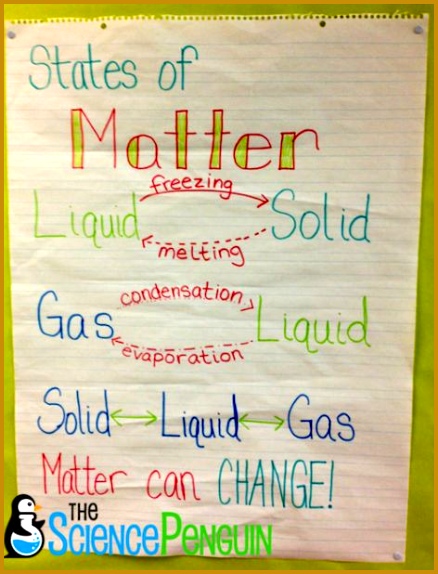 States of
Matter
freezing
Liquid Solid
melting
condensation
Gas Liquid
evaporation
Solid Liquid Gas
Matter can CHANGE!
THE
SCIENCE PENGUIN